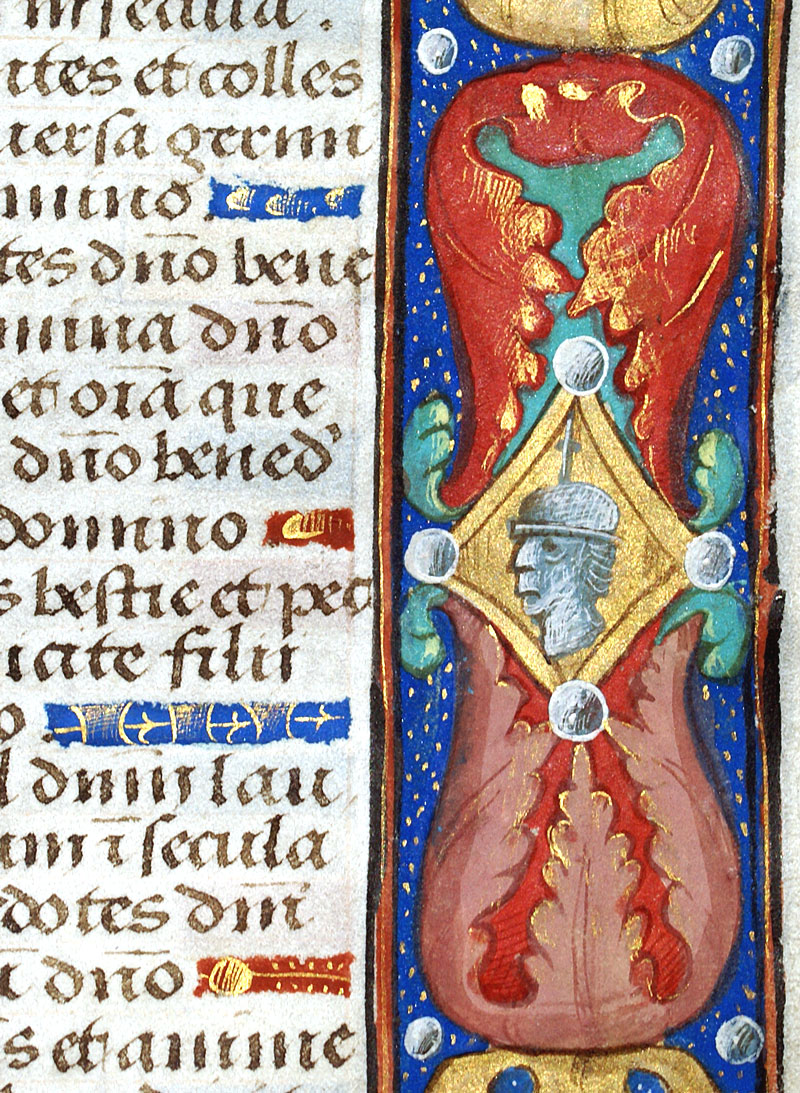 in secula .
ntes et colles
uersa germi
mino .
tes dn̄o bene
mina dn̄o
et oīa que
dn̄o bened'
domino
s bestie et pec
icite filii
o .
l dn̄m lau
um ī secula
dotes dn̄i
dn̄o
s et anime